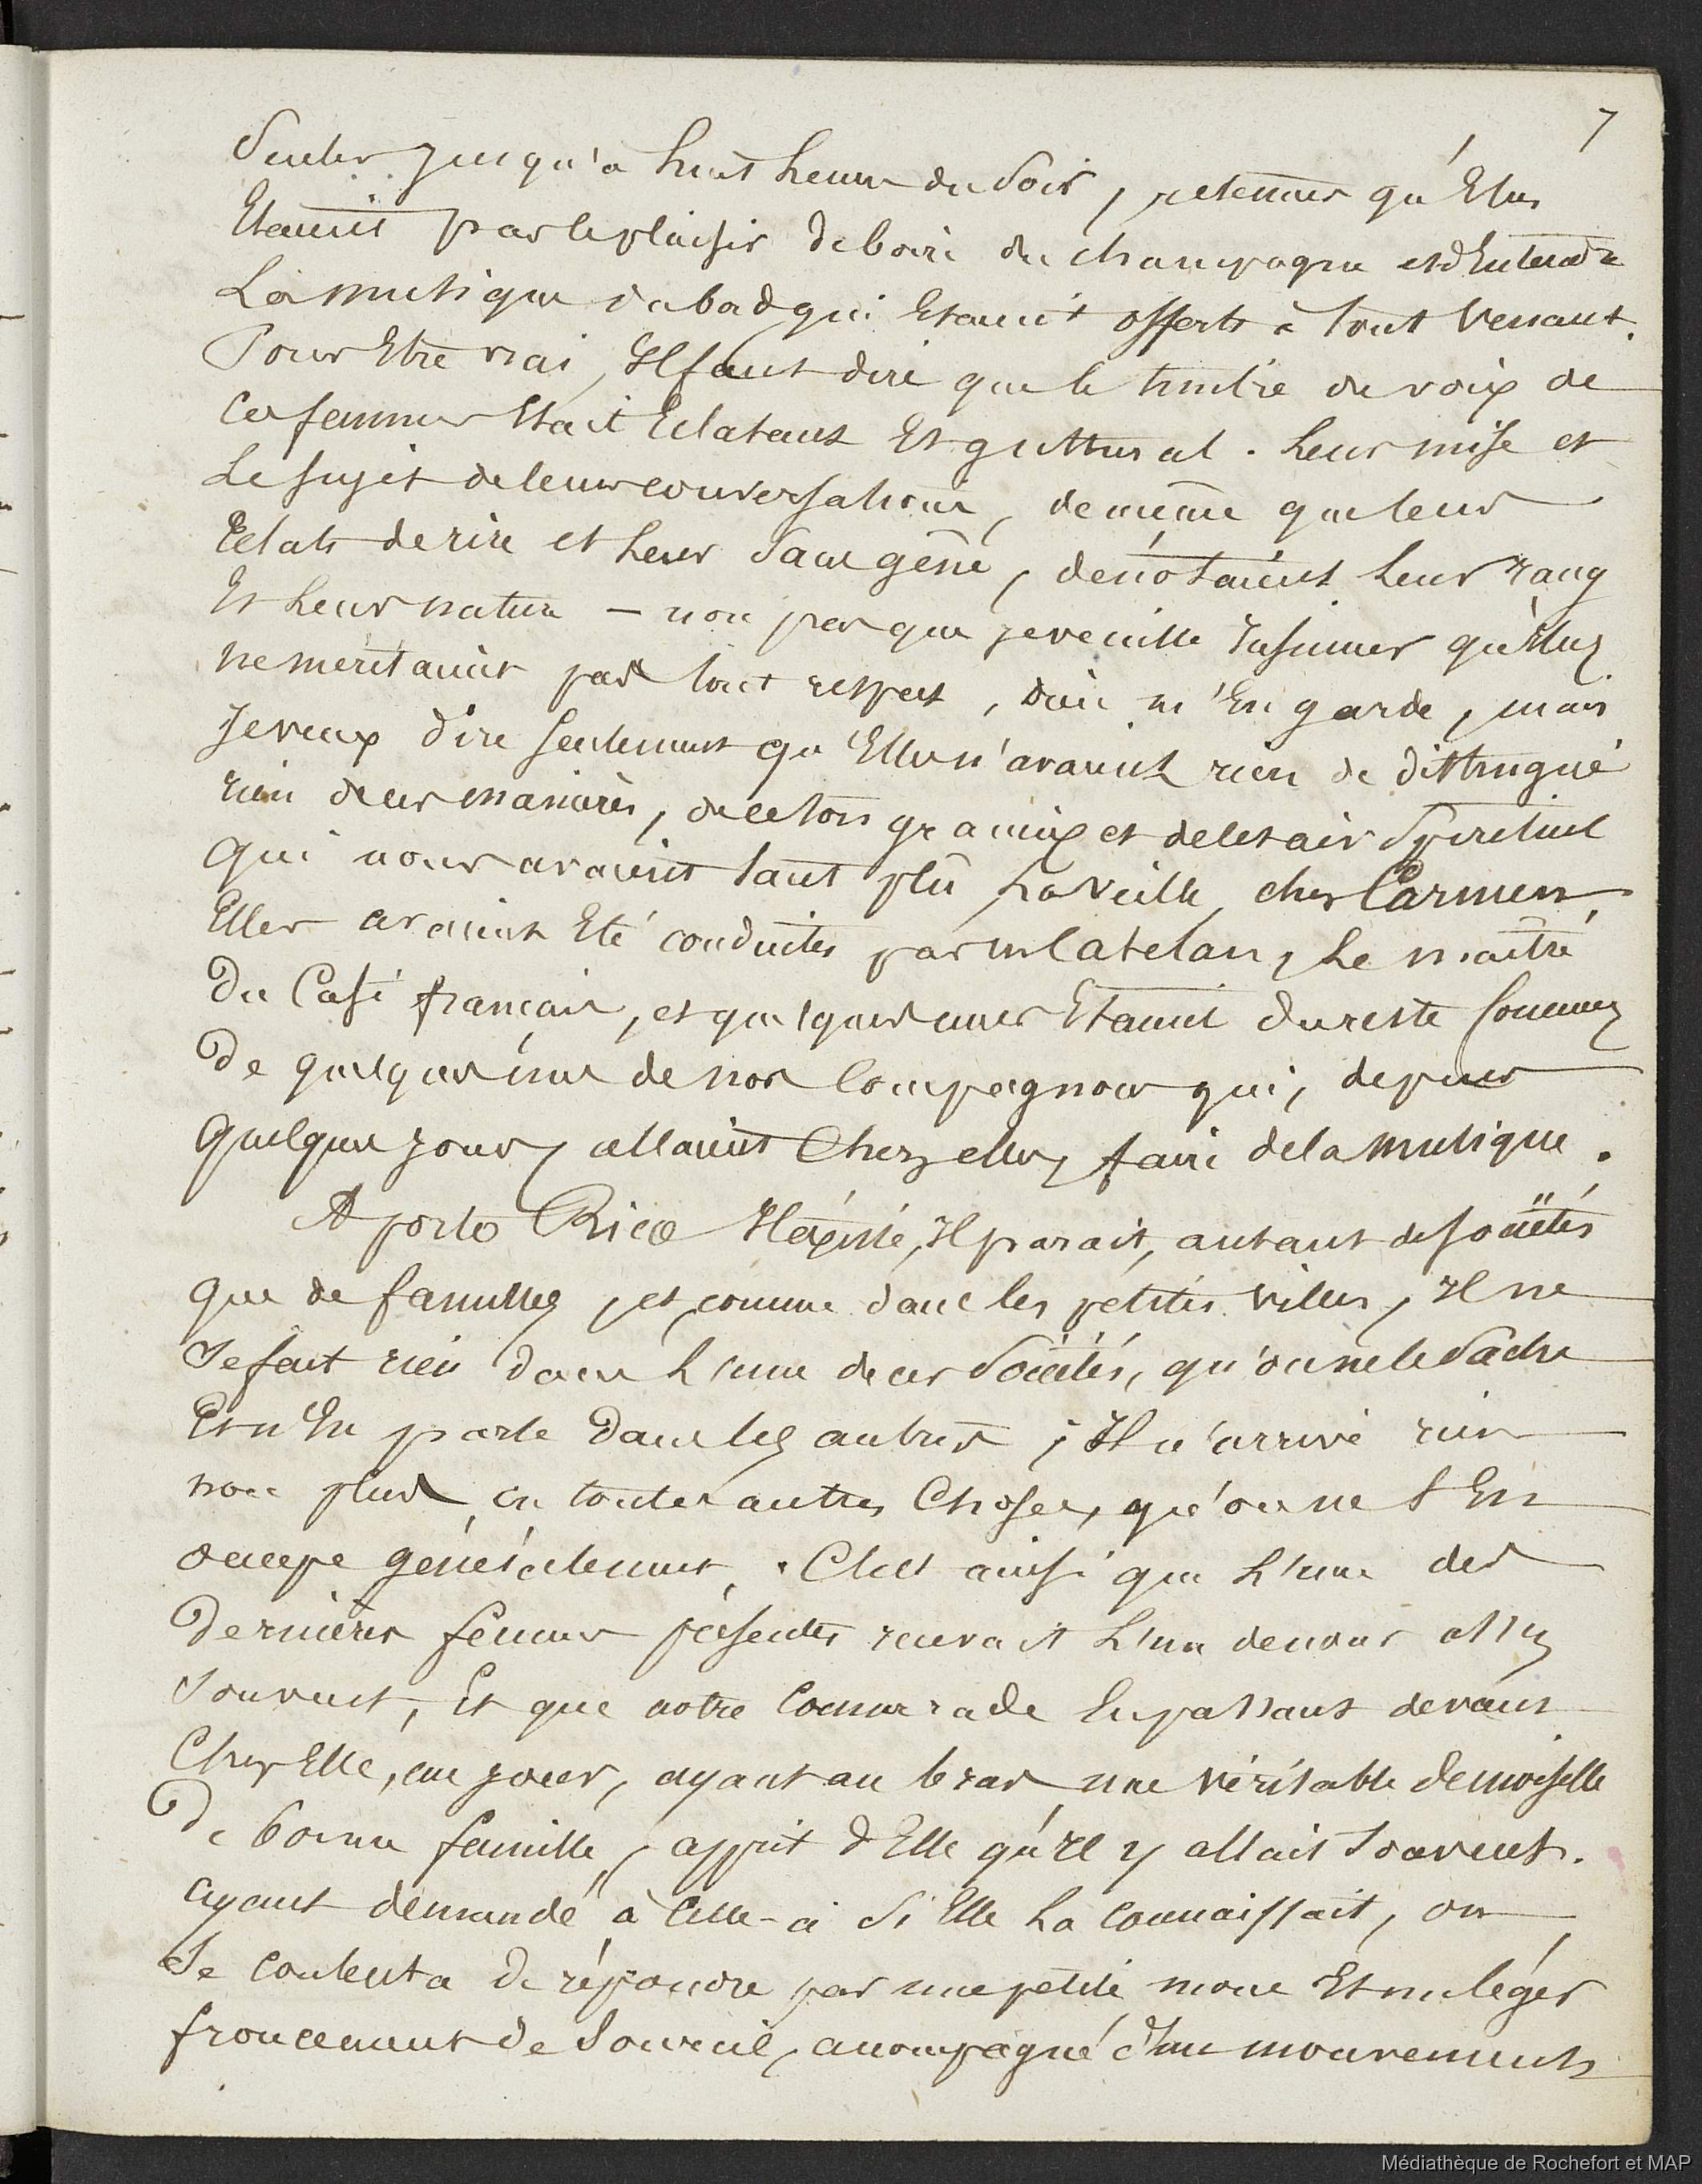 7
Seules jusqu'à huit heures du Soir, retenues qu'Elles
Etaient par le plaisir de boire du champagne et d'Entendre
La musique du bord qui Etaient offerts à tout Venant.
Pour Etre vrai, Il faut dire que le timbre de voix de
Ces femmes Etait Eclatant Et guttural. Leur mise et
Le sujet de leurs conversations, de même que leurs
Eclats de rire et Leur Sans gêne, dénotaient Leur rang
Et Leur nature – non pas que je veuille Insinuer qu'Elles
ne méritaient pas tout respect, Dieu m'En garde, mais
Je veux dire seulement qu'Elles n'avaient rien de distingué
rien de ces manières, de ce ton gracieux et de cet air Spirituel
Qui nous avaient tant plû La Veille, chez Carmen.
Elles avaient Eté conduites par Mr Catelan, Le maître
Du Café français, et quelques unes Etaient du reste Connues
De quelques uns de nos Compagnons qui, depuis
Quelques jours, allaient Chez elles faire de la Musique.
A porto Rico Il éxiste, Il parait, autant de Sociétés
Que de familles, et, comme dans les petites villes, Il ne
Se fait rien dans L'une de ces Sociétés, qu'on ne le Sache
Et n'En parle Dans les autres; Il n'arrive rien
non plus, en toutes autres Choses, qu'on ne S'En
occupe généralement. C'est ainsi que L'une des
Dernières femmes présentes recevait L'un de nous assez
Souvent, Et que notre Camarade En passant devant
Chez Elle, un jour, ayant au bras une véritable demoiselle
De bonne famille, apprit d'Elle qu'Il y allait Souvent.
Ayant demandé à Celle-ci Si Elle La Connaissait, on
Se contenta de répondre par une petite moue Et un léger
froncement de Sourcil, accompagné d'un mouvement
Médiathèque de Rochefort et MAP